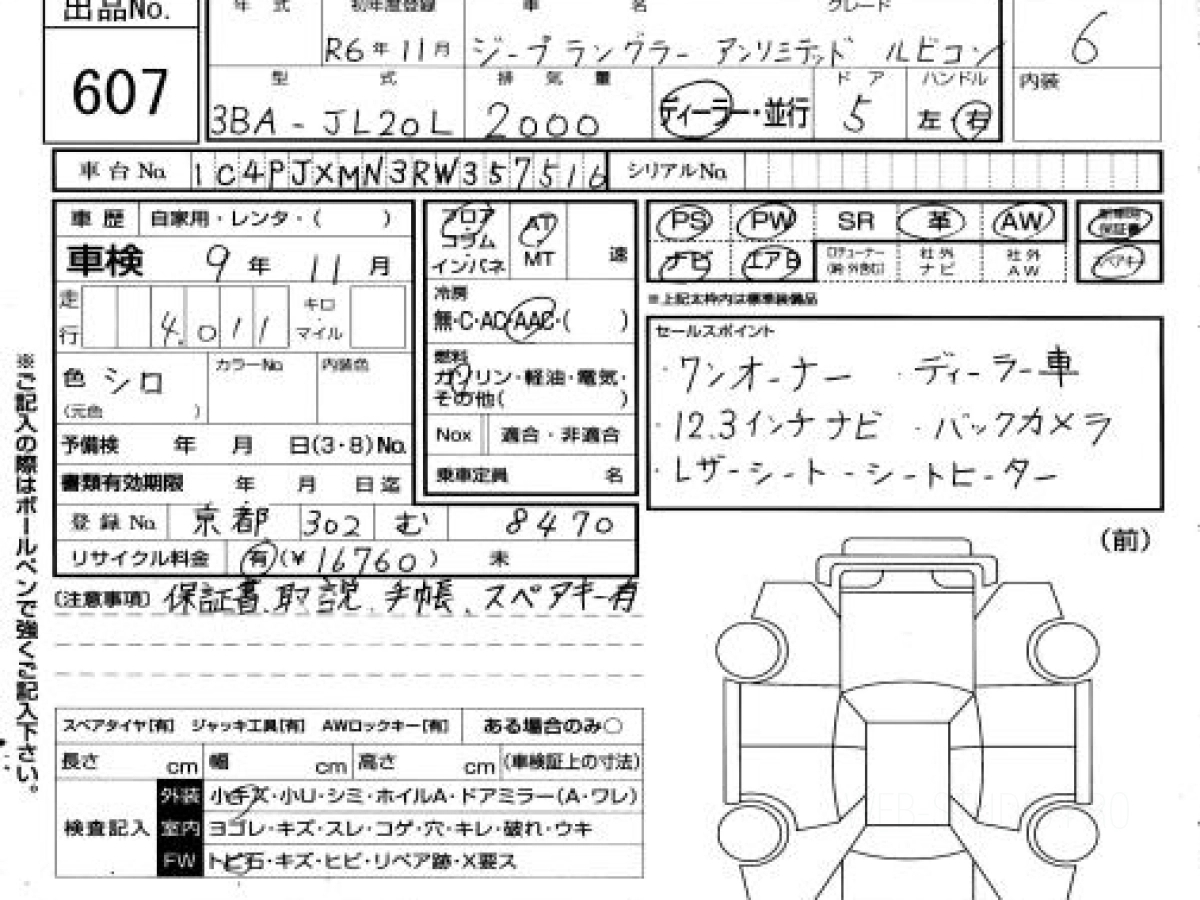 出品No. 年 式 初年度登録 車 名 グレード
R6年11月 ジープ ラングラー アンリミテッド ルビコン 6
607 型 式 排 気 量 ディーラー・並行 ド ア ハンドル 内装
3BA-JL20L 2000 5 左 右
車台No. 1C4PJXMN3RW357516 シリアルNo.
車 歴 自家用・レンタ・( )
車検 9年 11月
走行 4,011 キロ・マイル
色 シロ カラーNo. 内装色
(元色 )
予備検 年 月 日(3・8)No.
書類有効期限 年 月 日迄
登録No. 京都 302 む 8470
リサイクル料金 有(¥16760) 未
フロア AT
コラム
インパネ MT 速
冷房
無・C・AC・AAC・( )
燃料
ガソリン・軽油・電気・
その他( )
Nox 適合・非適合
乗車定員 名
PS PW SR 革 AW 新車時保証書
ナビ エアB ロテューナー 社外ナビ 社外AW スペアキー
※上記太枠内は標準装備品
セールスポイント
・ワンオーナー ・ディーラー車
・12.3インチナビ ・バックカメラ
・レザーシート -シートヒーター
(前)
[注意事項] 保証書、取説、手帳、スペアキー有
スペアタイヤ[有] ジャッキ工具[有] AWロックキー[有] ある場合のみ○
長さ cm 幅 cm 高さ cm (車検証上の寸法)
検査記入
外装 小キズ・小U・シミ・ホイルA・ドアミラー(A・ワレ)
室内 ヨゴレ・キズ・スレ・コゲ・穴・キレ・破れ・ウキ
FW トビ石・キズ・ヒビ・リペア跡・X要ス
※ご記入の際はボールペンで強くご記入下さい。